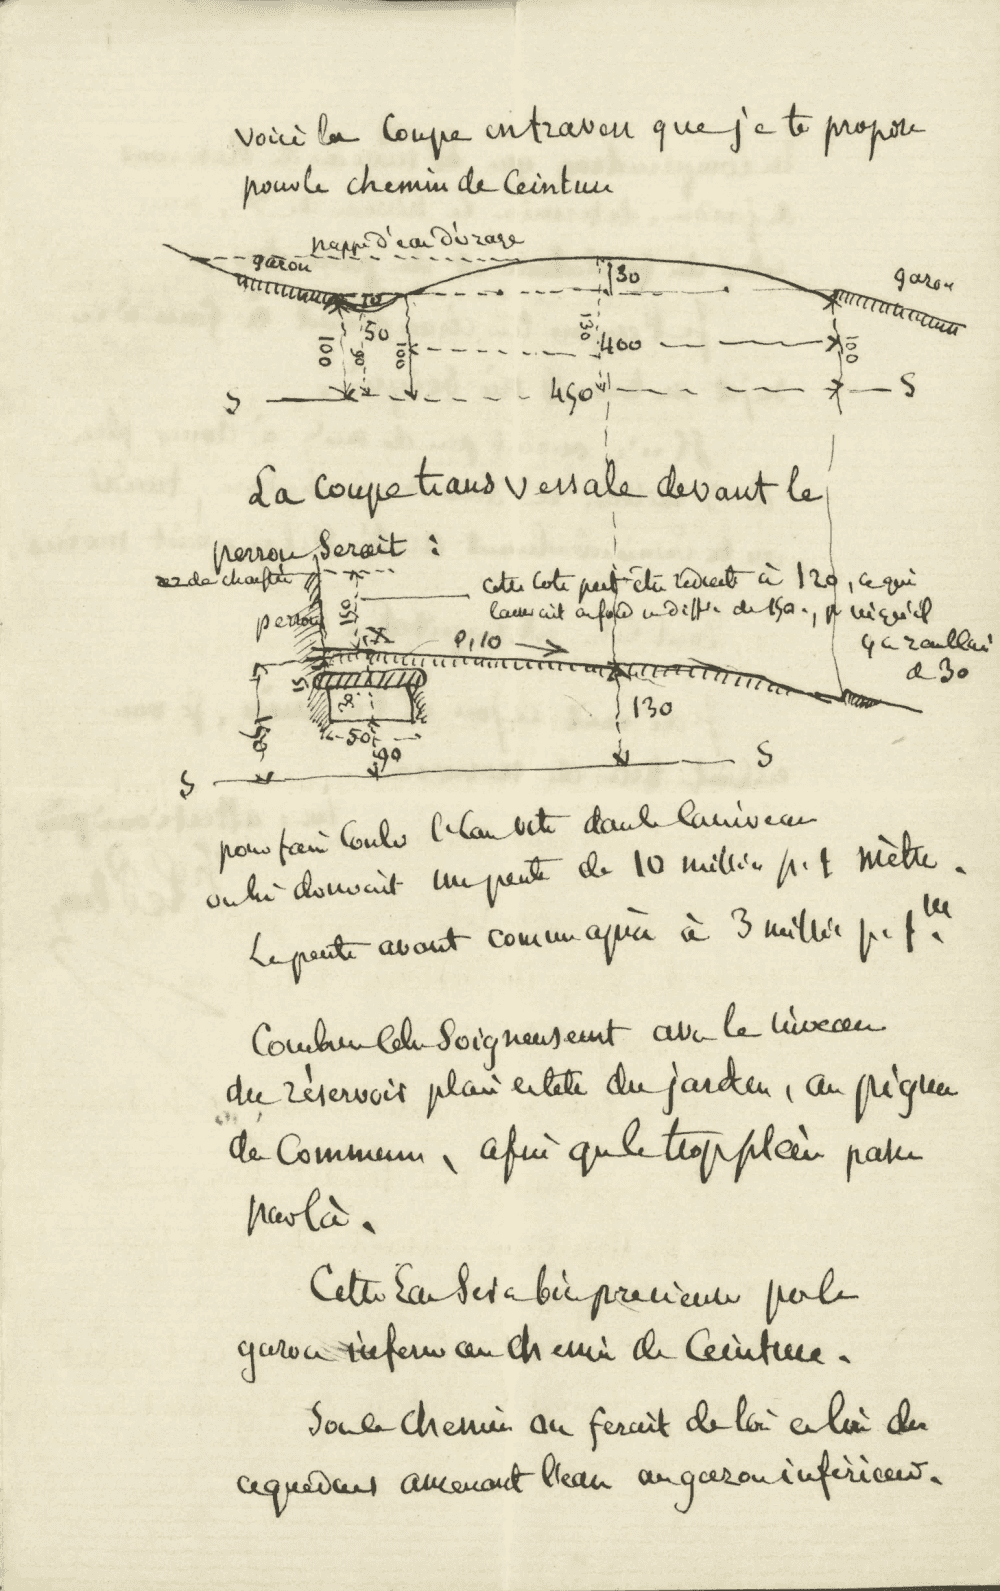 Voici la Coupe en travers que je te propose
pour le chemin de Ceinture
nappe d'eau d'orage
gazon
gazon
10
30
50
100
90
100
130
400
100
S
450
S
La coupe transversale devant le
perron Serait :
rez de chaussée
cette cote peut être réduite à 120, ce qui
perron
a 30
0,10
15
130
50
90
S
S
pour faire couler l'eau vite dans le caniveau
on lui donnerait une pente de 10 millim p. 1 mètre.
La pente avant comme après à 3 millim p. 1 m.
soigneusement avec le niveau
du réservoir plein en tête du jardin, au pignon
des Communs, afin que le trop plein passe
par là.
Cette Eau Sera bien précieuse pr le
gazon inférieur au chemin de Ceinture.
Sous le Chemin on ferait de loin en loin des
aqueducs amenant l'eau au gazon inférieur.